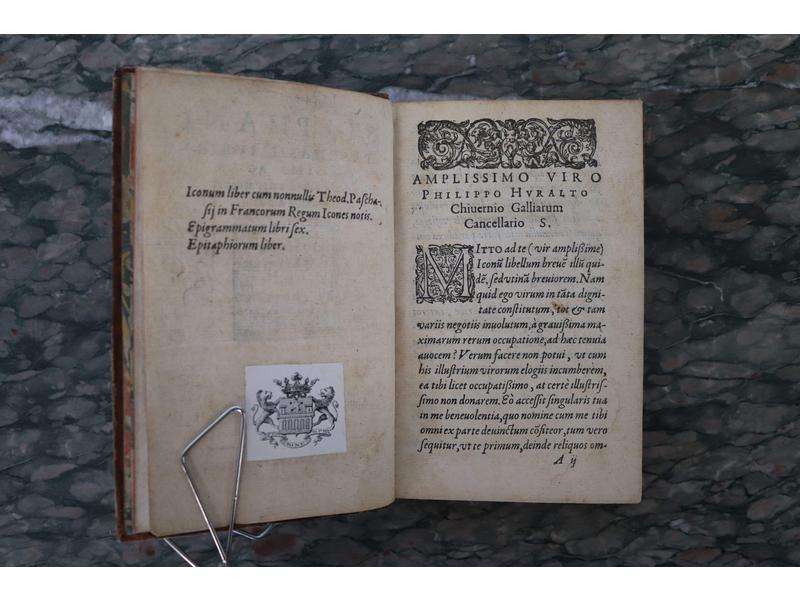 Iconum liber cum nonnullis Theod. Pascha-
sij in Francorum Regum Icones notis.
Epigrammatum libri sex.
Epitaphiorum liber.
AMPLISSIMO VIRO
PHILIPPO HVRALTO
Chiuernio Galliarum
Cancellario S.
MITTO ad te (vir amplißime)
Iconū libellum breuē illū qui-
dē, sed vtinā breuiorem. Nam
quid ego virum in tāta digni-
tate constitutum, tot & tam
variis negotiis inuolutum, à grauißima ma-
ximarum rerum occupatione, ad hæc tenuia
auocem? Verum facere non potui, vt cum
his illustrium virorum elogiis incumberem,
ea tibi licet occupatißimo, at certè illustris-
simo non donarem. Eò accessit singularis tua
in me beneuolentia, quo nomine cum me tibi
omni ex parte deuinctum cōfiteor, tum vero
sequitur, vt te primum, deinde reliquos om-
A ij